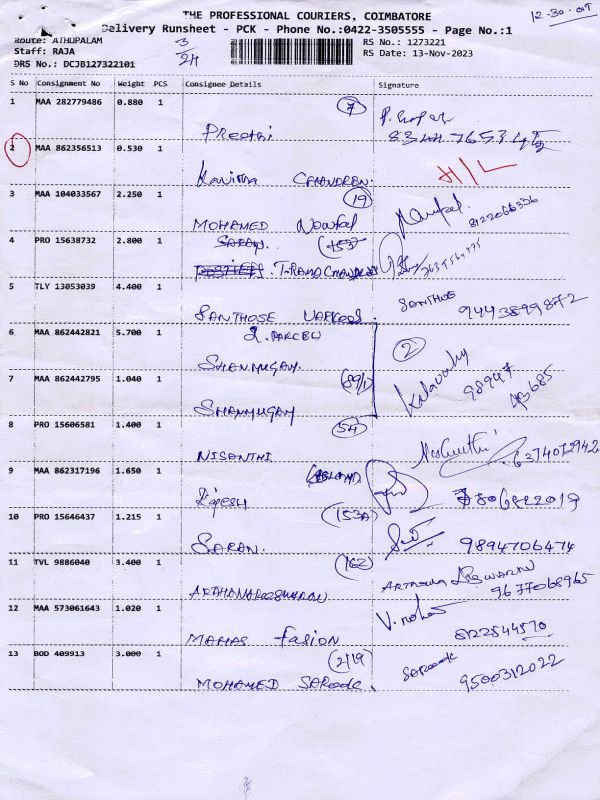 THE PROFESSIONAL COURIERS, COIMBATORE
Delivery Runsheet - PCK - Phone No.:0422-3505555 - Page No.:1
Route: ATHUPALAM
RS No.: 1273221
Staff: RAJA
RS Date: 13-Nov-2023
DRS No.: DCJB127322101
S No Consignment No Weight PCS Consignee Details Signature
1 MAA 282779486 0.880 1 Preethi
7
2 MAA 862356513 0.530 1 Kavitha CHANDREN
3 MAA 104033567 2.250 1 MOHAMED Nowfel
19
8122066336
4 PRO 15638732 2.800 1 SARAN
5 TLY 13053039 4.400 1 SANTHOSE SANTHOE 9443899872
6 MAA 862442821 5.700 1 2. PARCEL SHANMUGAM
2
7 MAA 862442795 1.040 1 SHANMUGAM
(89/1)
98947
8 PRO 15606581 1.400 1 NISANTHI 6374072942
54
9 MAA 862317196 1.650 1 Rajesh
10 PRO 15646437 1.215 1 SARAN. 9894706474
(153A)
11 TVL 9886040 3.400 1
(162)
9677068965
12 MAA 573061643 1.020 1 MAHAS Fasion 8122544570
13 BOD 409913 3.000 1 MOHAMED SAROOK. SAROOK 9500312022
(2/19)